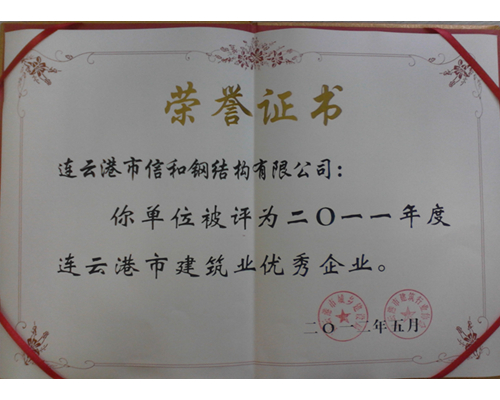 荣誉证书
连云港市信和钢结构有限公司：
你单位被评为二〇一一年度
连云港市建筑业优秀企业。
二〇一二年五月